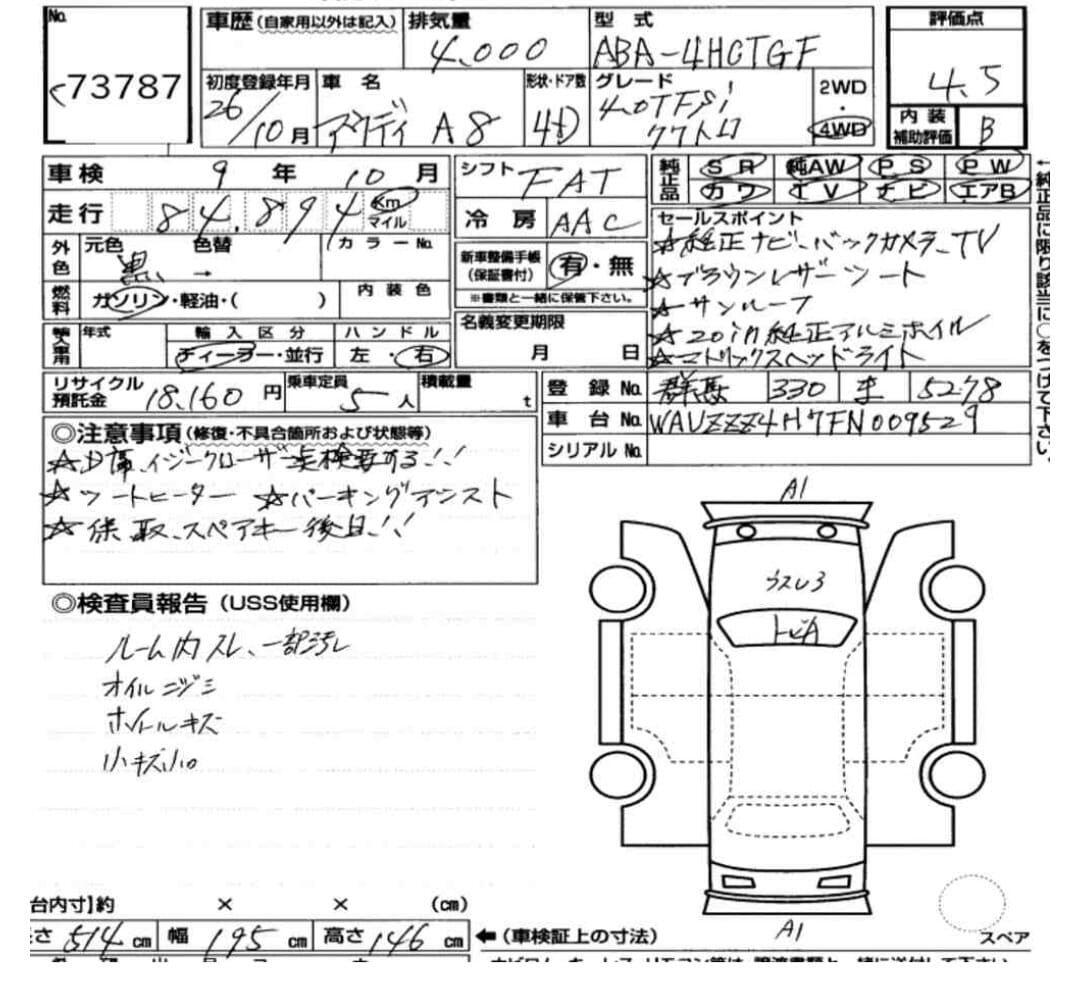 No.
73787
車歴(自家用以外は記入)
排気量
4,000
型式
ABA-4HCTGF
評価点
4.5
初度登録年月
26/10月
車名
アウディ A8
形状・ドア数
4D
グレード
4.0TFSi
クワトロ
2WD
・
4WD
内装
補助評価
B
車検
9年10月
シフト
FAT
純正品
SR 純AW PS PW
カワ TV ナビ エアB
走行
84,894
Km
マイル
冷房
AAC
セールスポイント
☆純正ナビ、バックカメラ、TV
☆ブラウンレザーシート
☆サンルーフ
☆20in純正アルミホイル
☆マトリックスヘッドライト
←純正品に限り該当に○をつけて下さい。
外色
元色
黒
色替
→
カラーNo.
新車整備手帳
(保証書付)
有・無
※書類と一緒に保管下さい。
燃料
ガソリン・軽油・( )
内装色
輸入車用
年式
輸入区分
ディーラー・並行
ハンドル
左・右
名義変更期限
月 日
リサイクル
預託金
18,160円
乗車定員
5人
積載量
t
登録No.
群馬 330 ま 5278
車台No.
WAUZZZ4H7FN009529
シリアルNo.
◎注意事項(修復・不具合箇所および状態等)
イージークローザー点検要する!!
☆シートヒーター ☆パーキングアシスト
☆保、取、スペアキー後日!!
◎検査員報告(USS使用欄)
ルーム内スレ、一部汚れ
オイルニジミ
ホイルキズ
小キズ小凹
A1
ウスレ3
トビA
A1
スペア
台内寸】約 × × (cm)
さ 514cm
幅 195cm
高さ 146cm
←(車検証上の寸法)